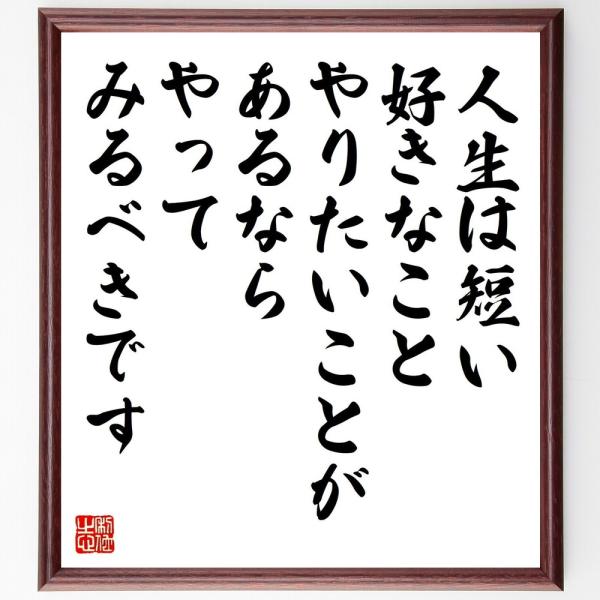 人生は短い
好きなこと
やりたいことが
あるなら
やって
みるべきです